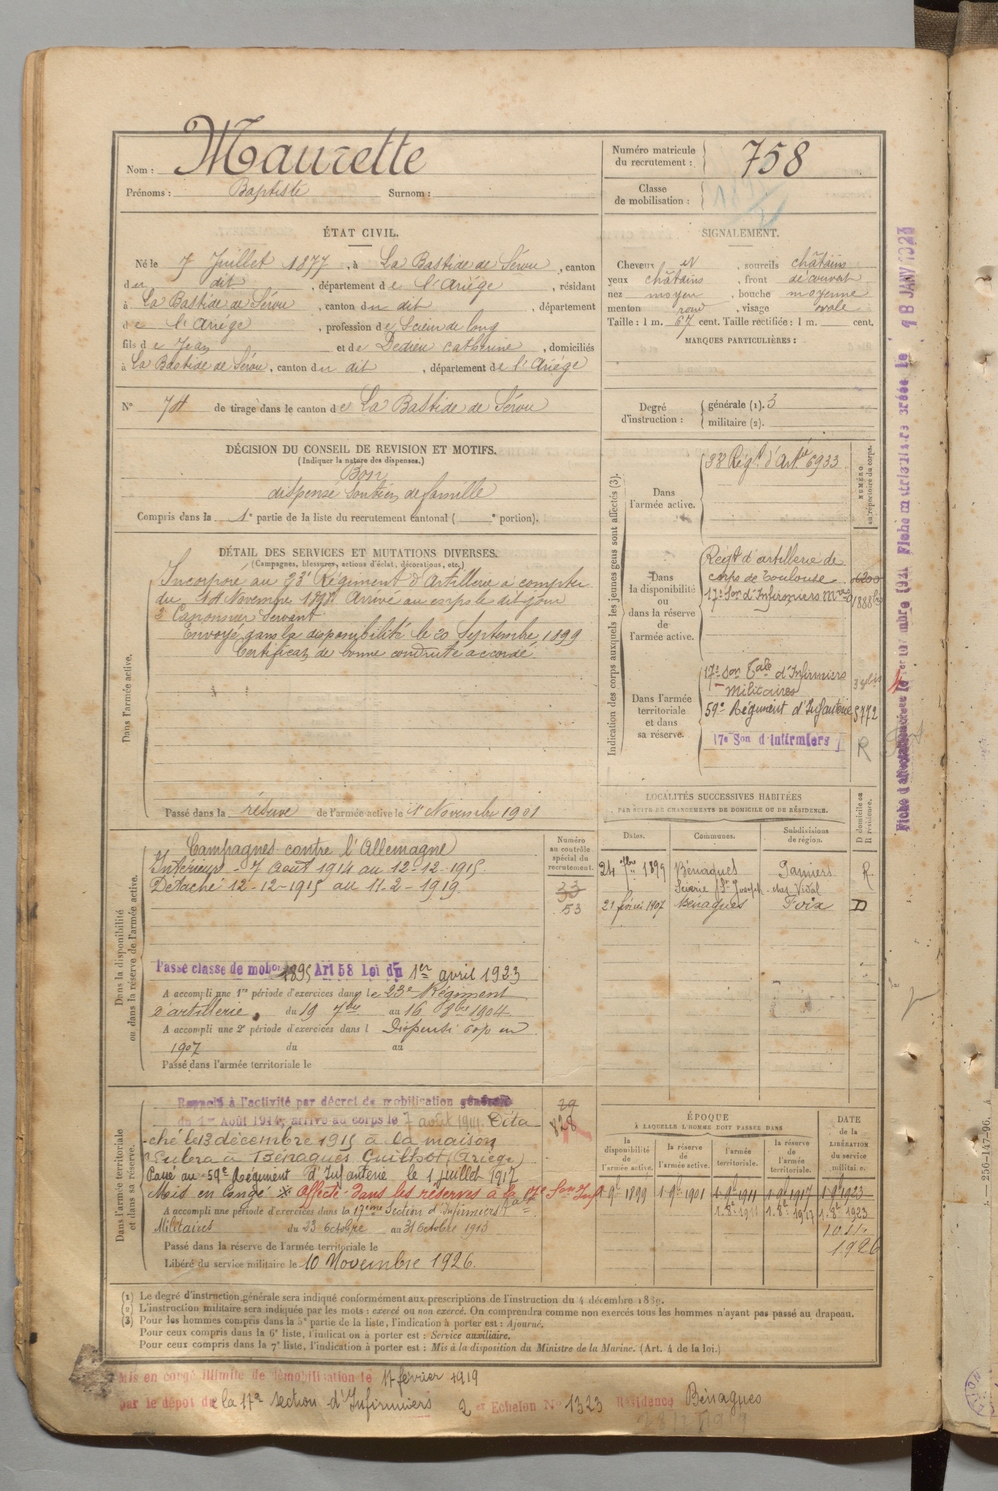 Nom : Maurette
Prénoms : Baptiste Surnom :
Numéro matricule du recrutement : 758
Classe de mobilisation :
ÉTAT CIVIL.
Né le 7 Juillet 1877, à La Bastide de Sérou, canton
du dit, département de l'Ariège, résidant
à La Bastide de Sérou, canton du dit, département
de l'Ariège, profession de Scieur de long
fils de Jean et de Dedieu Catherine, domiciliés
à La Bastide de Sérou, canton du dit, département de l'Ariège
N° de tirage dans le canton de La Bastide de Sérou
SIGNALEMENT.
Cheveux et, sourcils châtains
yeux châtains, front découvert
nez moyen, bouche moyenne
menton rond, visage ovale
Taille : 1 m. 67 cent. Taille rectifiée : 1 m. cent.
MARQUES PARTICULIÈRES :
Degré d'instruction : générale (1). 3
militaire (2).
DÉCISION DU CONSEIL DE REVISION ET MOTIFS.
(Indiquer la nature des dispenses.)
Bon
dispensé Soutien de famille
Compris dans la 1e partie de la liste du recrutement cantonal ( e portion).
DÉTAIL DES SERVICES ET MUTATIONS DIVERSES.
(Campagnes, blessures, actions d'éclat, décorations, etc.)
Dans l'armée active.
Incorporé au 23e Régiment d'Artillerie à compter
du Novembre 1898 Arrivé au corps le dit jour
2e Canonnier Servant
Envoyé dans la disponibilité le 20 Septembre 1899
Certificat de bonne conduite accordé.
Passé dans la réserve de l'armée active le 1er Novembre 1901
Indication des corps auxquels les jeunes gens sont affectés (3).
NUMÉRO au répertoire du corps.
Dans l'armée active.
38e Régt d'Artie 6933
Dans la disponibilité ou dans la réserve de l'armée active.
Regt d'artillerie de
corps de Toulouse 6200
17e Son d'Infirmiers
Dans l'armée territoriale et dans sa réserve.
17e Son d'Infirmiers
Militaires
59e Régiment d'Infanterie 5772
17e Son d'Infirmiers R
LOCALITÉS SUCCESSIVES HABITÉES
PAR SUITE DE CHANGEMENTS DE DOMICILE OU DE RÉSIDENCE.
Dates. Communes. Subdivisions de région. D domicile ou R résidence.
24 7bre 1899 Bénagues Pamiers R
Scierie St Joseph chez Vidal
21 février 1907 Bénagues Foix D
Dans la disponibilité ou dans la réserve de l'armée active.
Numéro au contrôle spécial du recrutement.
53
Campagnes contre l'Allemagne
Intérieur - 7 Août 1914 au 12-12-1915
Détaché 12-12-1915 au 17-2-1919.
Passé classe de mobon 1895 Art 58 Loi du 1er avril 1923
A accompli une 1re période d'exercices dans le 23e Régiment
d'artillerie, du 19 7bre au 16 8bre 1904
A accompli une 2e période d'exercices dans l Dispensé en
1907 du au
Passé dans l'armée territoriale le
Dans l'armée territoriale et dans sa réserve.
Rappelé à l'activité par décret de mobilisation générale
du 1er Août 1914, arrivé au corps le 7 août 1914. Déta
ché le 13 décembre 1915 à la maison
à Bénagues (Ariège)
Passé au 59e Régiment d'Infanterie le 1 juillet 1917
Mis en congé affecté dans les réserves à la 17e Son
A accompli une période d'exercices dans la 17ème Section d'Infirmiers
Militaires du 23 octobre au 31 octobre 1913
Passé dans la réserve de l'armée territoriale le
Libéré du service militaire le 10 Novembre 1926.
828
ÉPOQUE
À LAQUELLE L'HOMME DOIT PASSER DANS
la disponibilité de l'armée active. la réserve de l'armée active. l'armée territoriale. la réserve de l'armée territoriale. DATE de la LIBÉRATION du service militaire.
1 9e 1899 1 9e 1901 1 9e 1911 1 9e 1917 1 9e 1923
1.8e 1911 1.8e 1917 1.8e 1923
10.11.
1926
(1) Le degré d'instruction générale sera indiqué conformément aux prescriptions de l'instruction du 4 décembre 1889.
(2) L'instruction militaire sera indiquée par les mots : exercé ou non exercé. On comprendra comme non exercés tous les hommes n'ayant pas passé au drapeau.
(3) Pour les hommes compris dans la 5e partie de la liste, l'indication à porter est : Ajourné.
Pour ceux compris dans la 6e liste, l'indication à porter est : Service auxiliaire.
Pour ceux compris dans la 7e liste, l'indication à porter est : Mis à la disposition du Ministre de la Marine. (Art. 4 de la loi.)
Mis en congé illimité de démobilisation le 17 février 1919
par le dépôt de la 17e section d'Infirmiers 2 er Echelon N° 1323 Résidence Bénagues
Fiche matriculaire créée le 18 JANV 1923